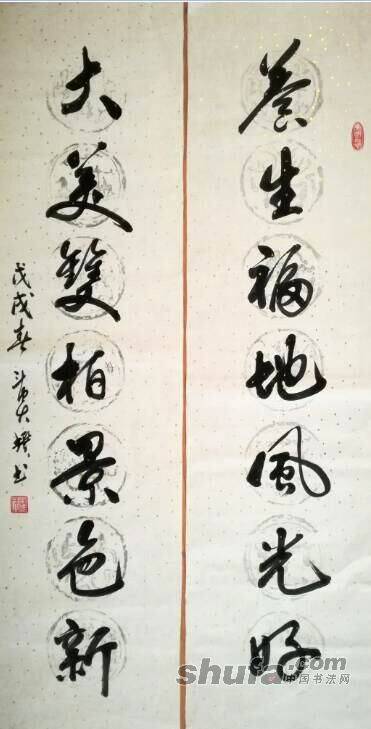 養生福地風光好
大美雙柏景色新
戊戌春
书
shufa.com
中国书法网